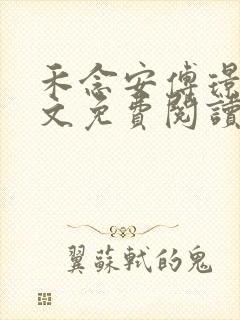 禾念安傅璟
文免費閱讀
翼蘇軾的鬼